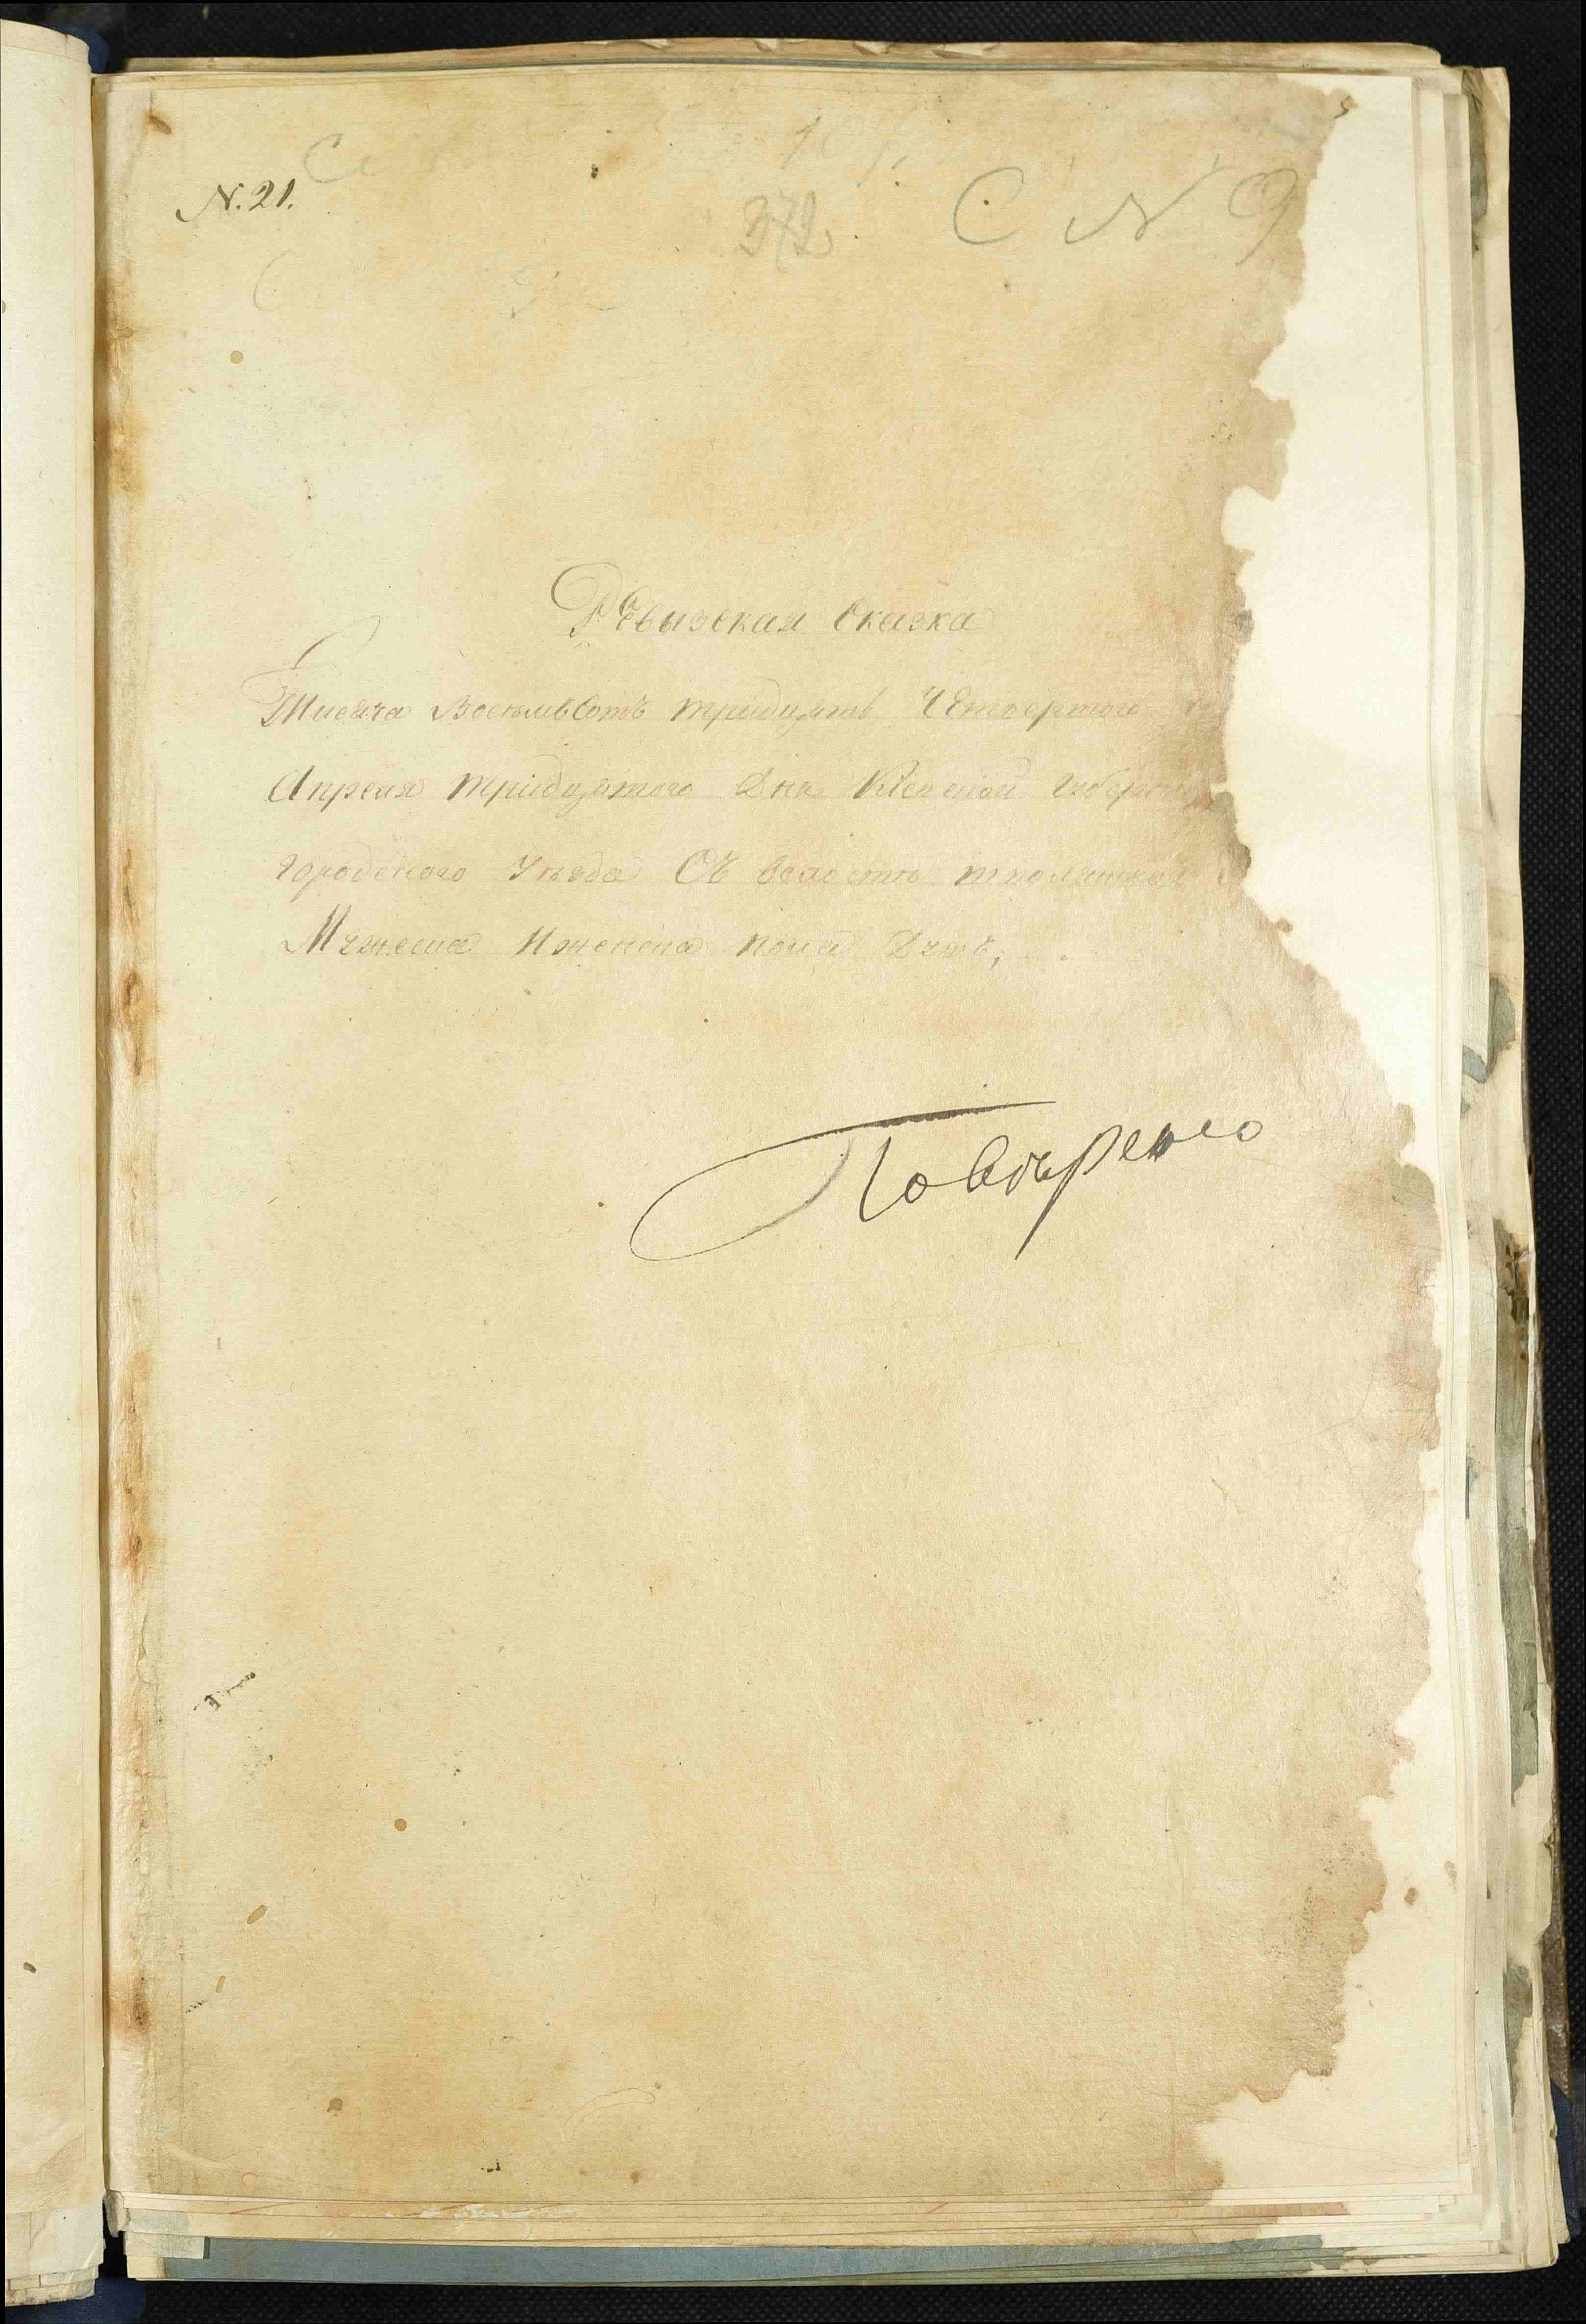 N. 21.
372
С N 9
РЕвызская Сказка
Тисяча ВосемьСотъ тридцять ЧЕтвертого
Апреля тридцятого Дня Киевской Губерн
городского Уезда СЪ
Мужеска Иженска пола Душъ,
Повѣрено